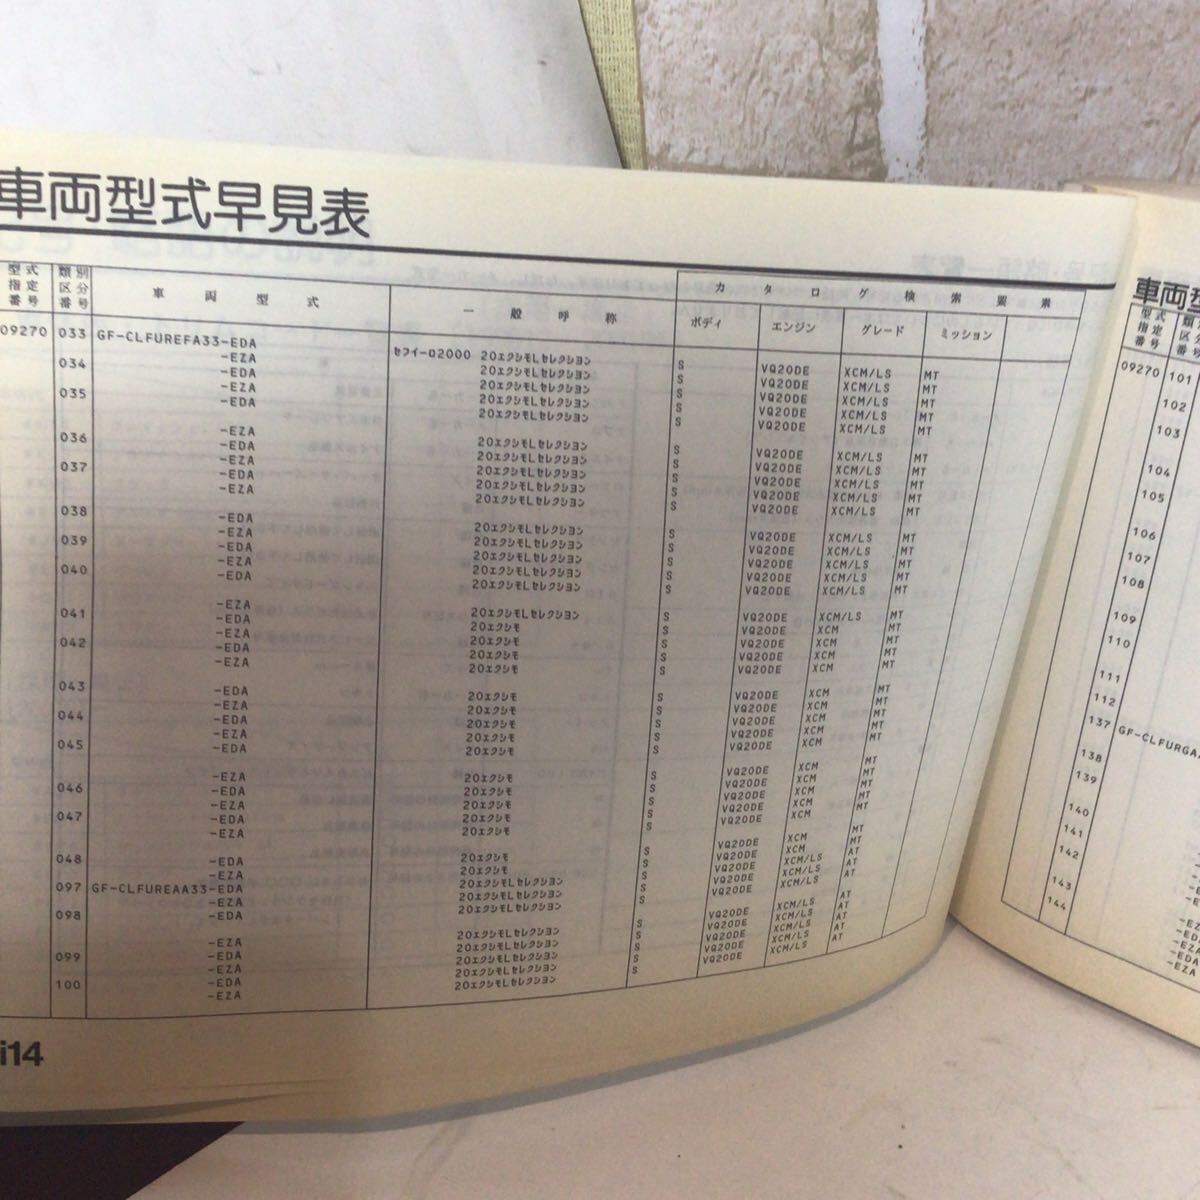 車両型式早見表
型式指定番号 類別区分番号 車両型式 一般呼称 カタログ検索要素
ボディ エンジン グレード ミッション
09270 033 GF-CLFUREFA33-EDA セフィーロ2000 20エクシモLセレクション S VQ20DE XCM/LS MT
-EZA 20エクシモLセレクション S VQ20DE XCM/LS MT
034 -EDA 20エクシモLセレクション S VQ20DE XCM/LS MT
-EZA 20エクシモLセレクション S VQ20DE XCM/LS MT
035 -EDA 20エクシモLセレクション S VQ20DE XCM/LS MT
-EZA 20エクシモLセレクション S VQ20DE XCM/LS MT
036 -EDA 20エクシモLセレクション S VQ20DE XCM/LS MT
-EZA 20エクシモLセレクション S VQ20DE XCM/LS MT
037 -EDA 20エクシモLセレクション S VQ20DE XCM/LS MT
-EZA 20エクシモLセレクション S VQ20DE XCM/LS MT
038 -EDA 20エクシモLセレクション S VQ20DE XCM/LS MT
-EZA 20エクシモLセレクション S VQ20DE XCM/LS MT
039 -EDA 20エクシモLセレクション S VQ20DE XCM/LS MT
-EZA 20エクシモLセレクション S VQ20DE XCM/LS MT
040 -EDA 20エクシモLセレクション S VQ20DE XCM/LS MT
-EZA 20エクシモLセレクション S VQ20DE XCM/LS MT
041 -EDA 20エクシモ S VQ20DE XCM MT
-EZA 20エクシモ S VQ20DE XCM MT
042 -EDA 20エクシモ S VQ20DE XCM MT
-EZA 20エクシモ S VQ20DE XCM MT
043 -EDA 20エクシモ S VQ20DE XCM MT
-EZA 20エクシモ S VQ20DE XCM MT
044 -EDA 20エクシモ S VQ20DE XCM MT
-EZA 20エクシモ S VQ20DE XCM MT
045 -EDA 20エクシモ S VQ20DE XCM MT
-EZA 20エクシモ S VQ20DE XCM MT
046 -EDA 20エクシモ S VQ20DE XCM MT
-EZA 20エクシモ S VQ20DE XCM MT
047 -EDA 20エクシモ S VQ20DE XCM MT
-EZA 20エクシモ S VQ20DE XCM MT
048 -EDA 20エクシモ S VQ20DE XCM MT
-EZA 20エクシモ S VQ20DE XCM MT
097 GF-CLFUREAA33-EDA 20エクシモLセレクション S VQ20DE XCM/LS AT
-EZA 20エクシモLセレクション S VQ20DE XCM/LS AT
098 -EDA 20エクシモLセレクション S VQ20DE XCM/LS AT
-EZA 20エクシモLセレクション S VQ20DE XCM/LS AT
099 -EDA 20エクシモLセレクション S VQ20DE XCM/LS AT
-EZA 20エクシモLセレクション S VQ20DE XCM/LS AT
100 -EDA 20エクシモLセレクション S VQ20DE XCM/LS AT
-EZA
i14
車両型
型式指定番号
09270 101
102
103
104
105
106
107
108
109
110
111
112
137 GF-CLFURGA
138
139
140
141
142
143
144
-EDA
-EZA
-EDA
-EZA